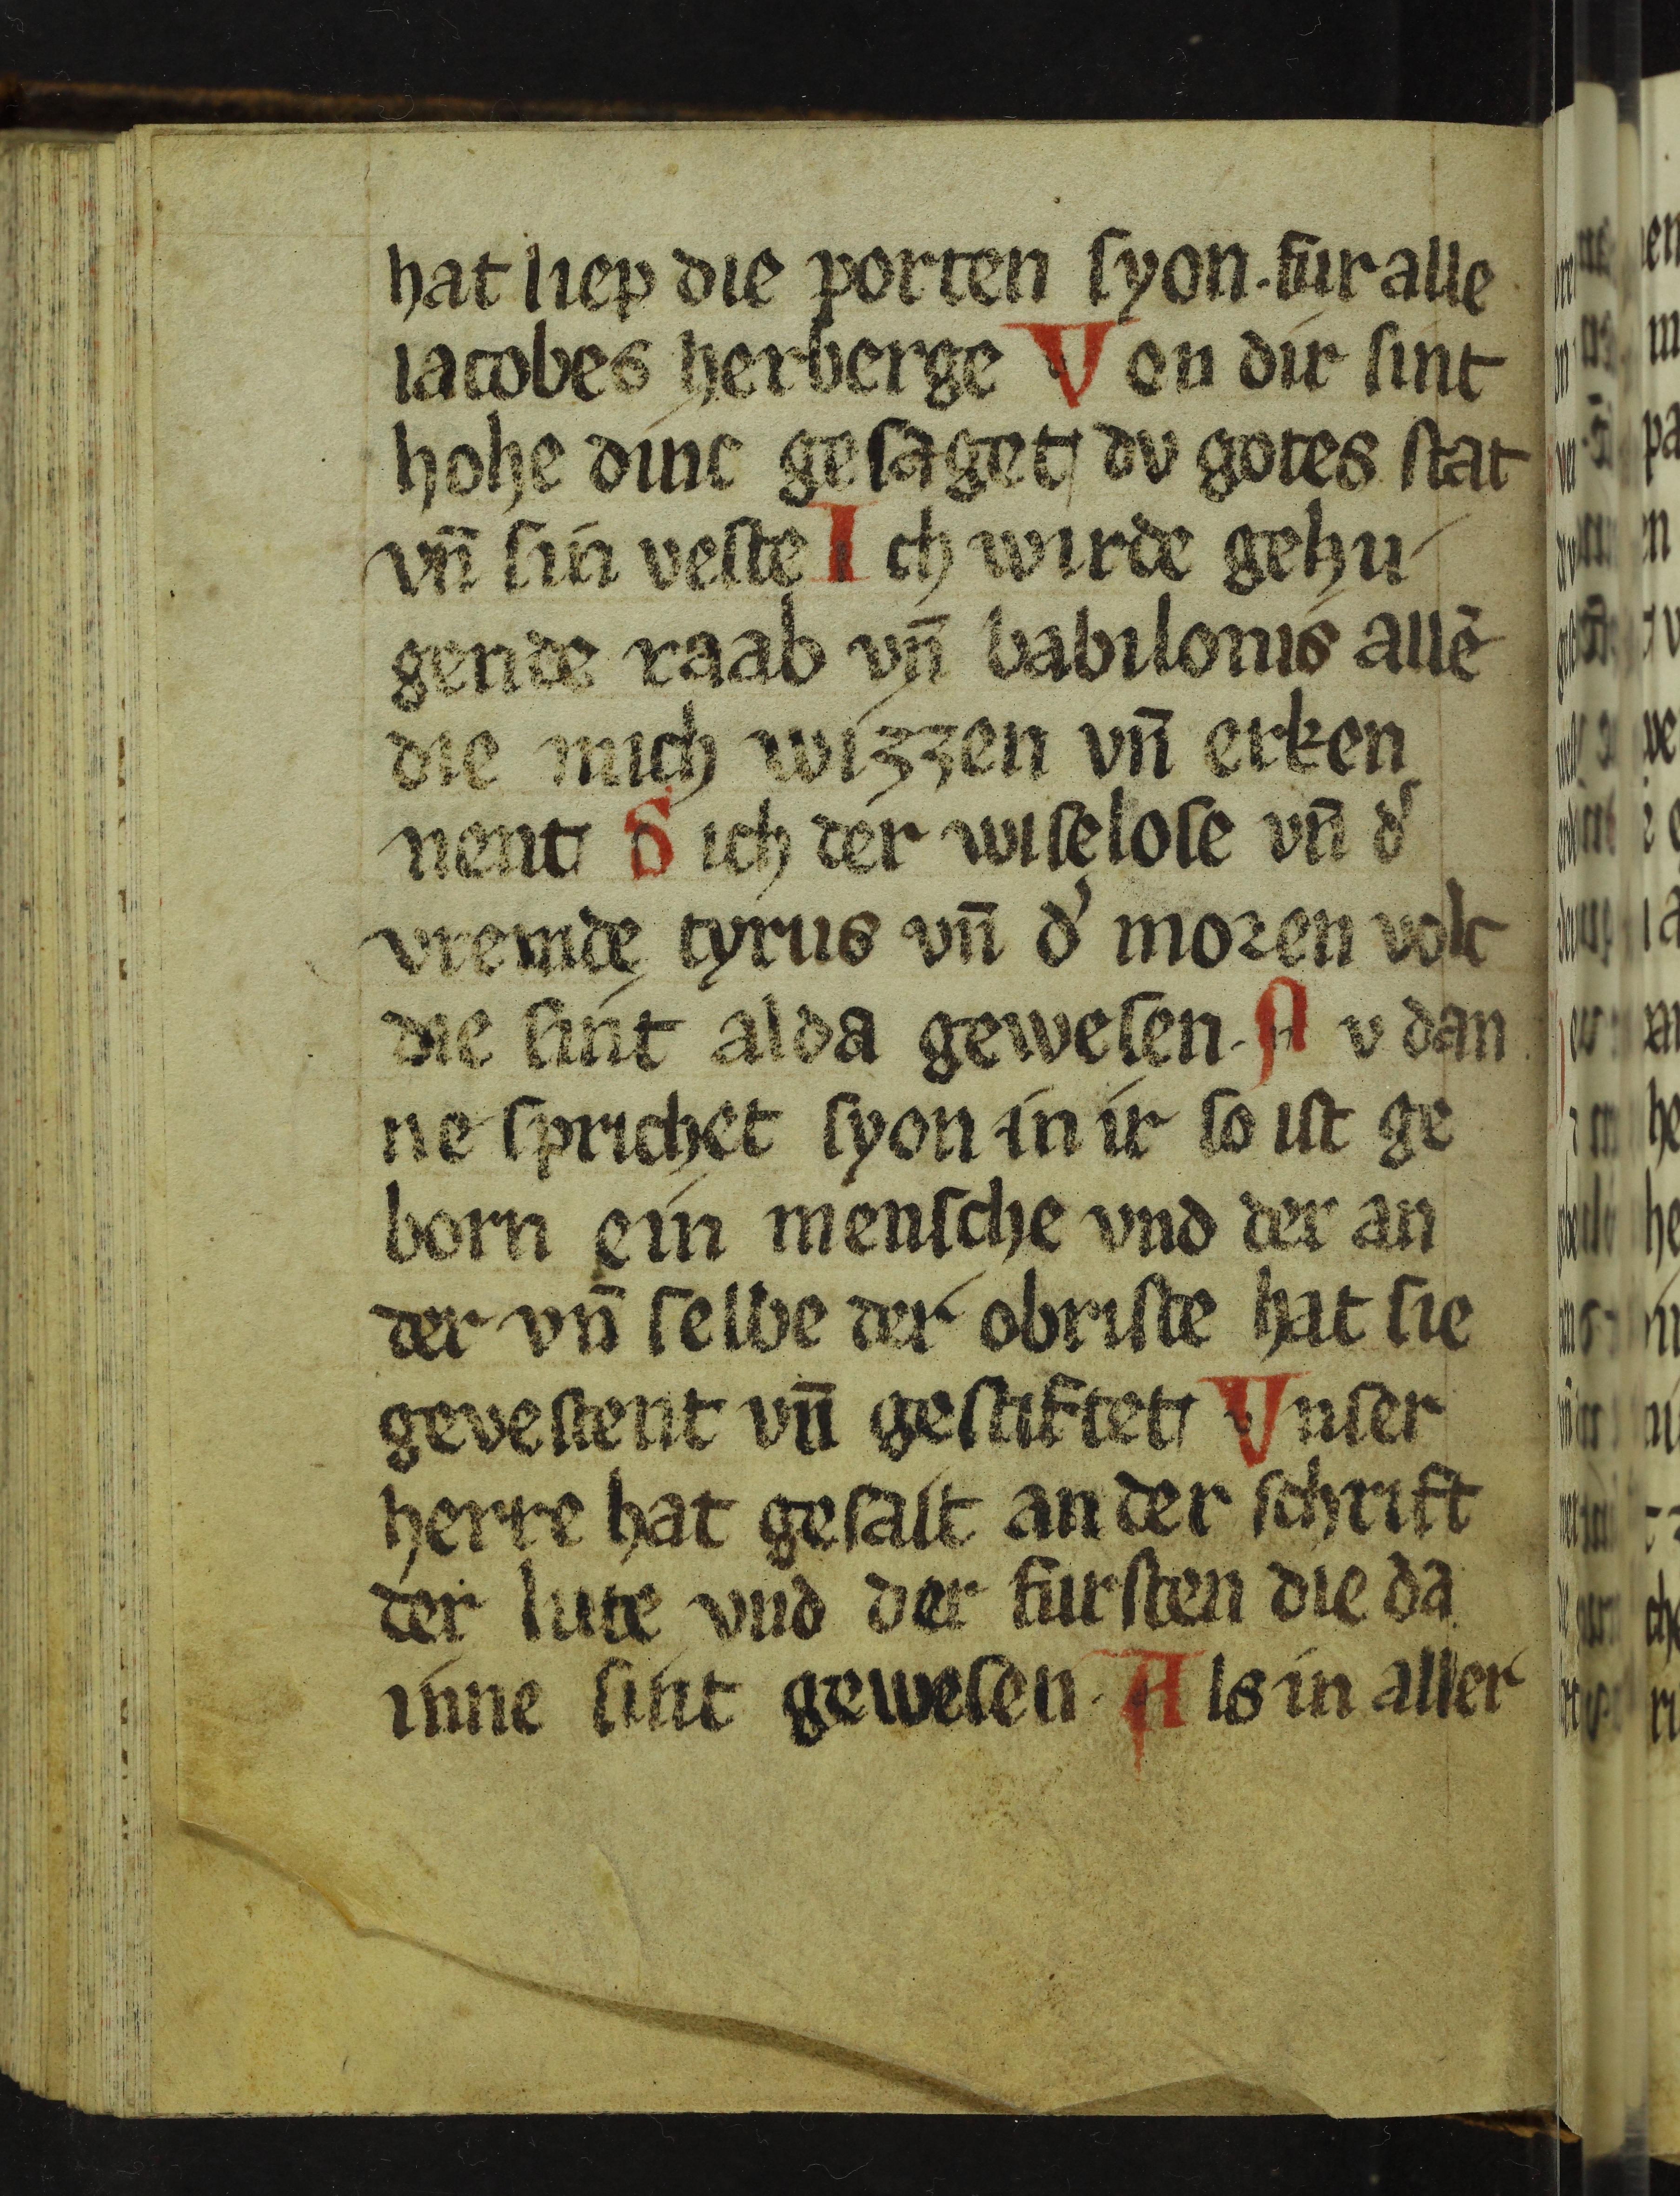 hat liep die porten ſyon. fur alle
iacobes herberge Von dir ſint
hohe dinc geſaget du gotes ſtat
vn̄ ſin veſte Ich wirde gehu
gende raab vn̄ babilonis allē
die mich wizzen vn̄ erken
nent Sich der wiſeloſe vn̄ d'
vremde tyrus vn̄ d' moꝛen volc
die ſint alda geweſen. Nv dan
ne ſprichet ſyon in ir ſo iſt ge
born ein menſche vnd der an
der vn̄ ſelbe der obriſte hat ſie
geveſtent vn̄ geſtiftet Vnſer
herre hat geſalt an der ſchrift
der lute vnd der furſten die da
inne ſint geweſen. Als in aller